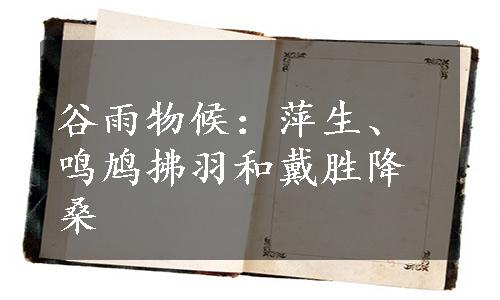 谷雨物候：萍生、
鸣鸠拂羽和戴胜降
桑